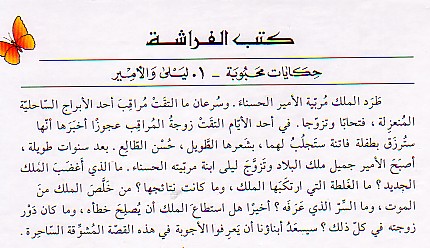 كتب الفراشة
حِكايات مَحبُوبة - ١٠ ليْلى وَالأمِير
طَرَد الملك مُربّية الأمير الحسناء. وسُرعان ما التقتْ مُراقِبَ أحد الأبراج السّاحليّة
المُنعزِلة، فتحابّا وتزوّجا. في أحد الأيّام التقتْ زوجةُ المُراقِب عجوزًا أخبرَها أنّها
ستُرزَق بطفلة فاتنة ستَجلُبُ لهما، بشَعرها الطّويل، حُسْنَ الطّالِع. بعد سنوات طويلة،
أصبحَ الأمير جميل ملك البلاد وتَزوَّجَ ليلى ابنة مربّيته الحسناء. ما الذي أغضبَ المَلك
الجديد؟ ما الغلطة التي ارتكبَها الملك، وما كانت نتائجها؟ من خلَّصَ الملك منَ
الموت، وما السِّرّ الذي عَرَفه؟ أخيرًا هل استطاعَ الملك أن يُصلِحَ خطأه، وما كان دَوْر
زوجته في كلّ ذلك؟ سيسعدُ أبناؤنا أن يَعرِفوا الأجوبة في هذه القصّة المشوِّقة السّاحرة.